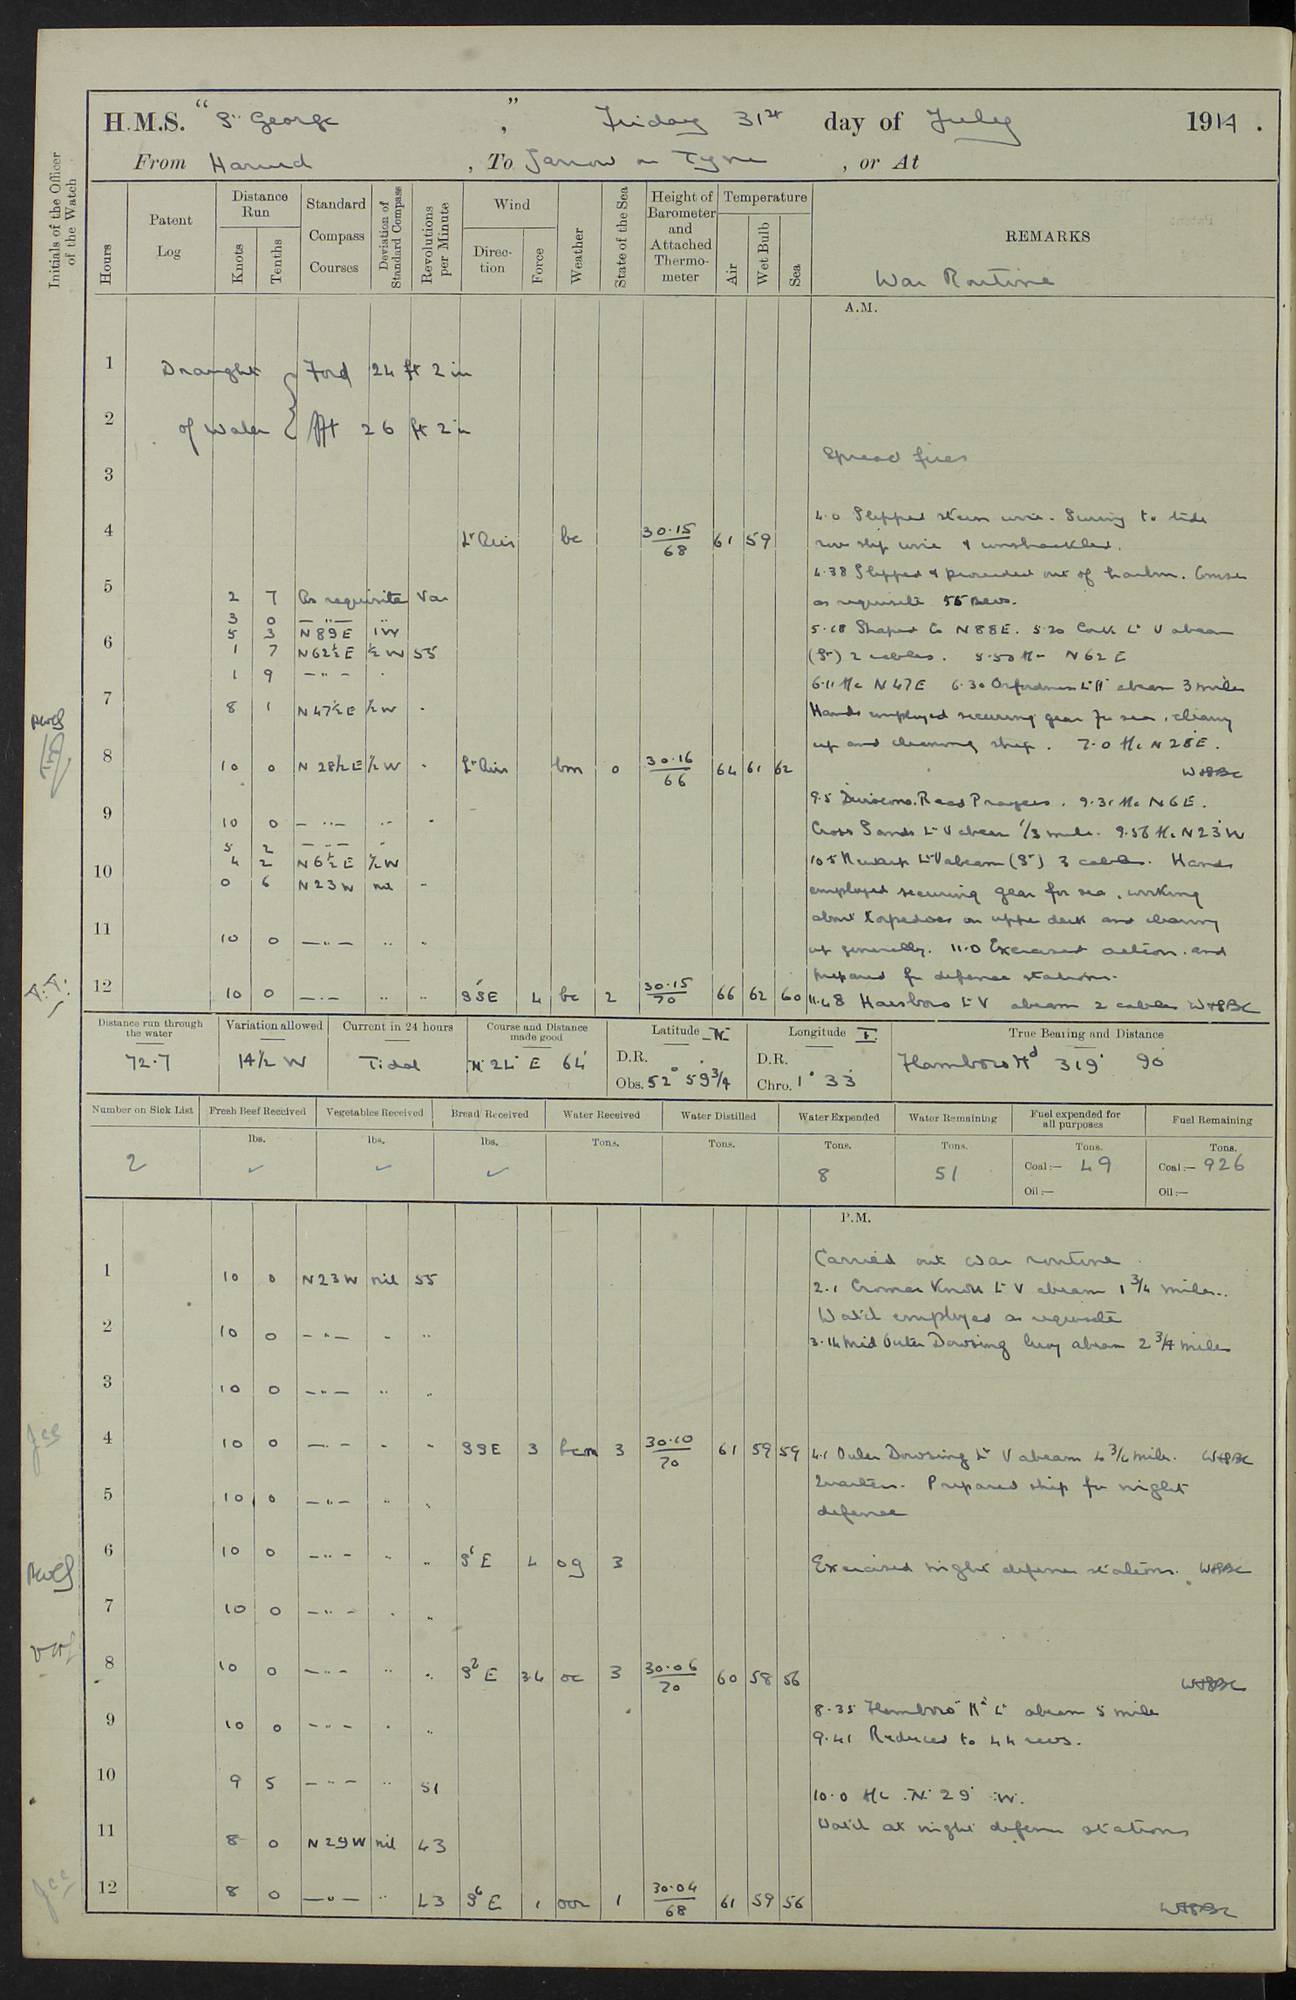 H.M.S. "St George", Friday 31st day of July 1914.
From Harwich, To Jarrow on Tyne, or At
Initials of the Officer of the Watch
Hours
Patent Log
Distance Run
Knots
Tenths
Standard Compass Courses
Deviation of Standard Compass
Revolutions per Minute
Wind
Direction
Force
Weather
State of the Sea
Height of Barometer and Attached Thermometer
Temperature
Air
Wet Bulb
Sea
REMARKS
War Routine
A.M.
1 Draught Ford 24 ft 2 in
2 of Water Aft 26 ft 2 in
3
Spread fires
4 Lt Airs bc 30.15/68 61 59
4.0 Slipped stern wire. Swung to tide
rove slip wire & unshackled.
4.38 Slipped & proceeded out of harbour. Course
5 2 7 As requisite Var
as requisite 55 Revs.
3 0 — " —
5 3 N89E 1W
5.18 Shaped Co N88E. 5.20 Cork Lt V abeam
6 1 7 N62½E ½W 55
(St) 2 cables. 5.50 A/c N62E
1 9 — " —
6.11 A/c N47E 6.30 Orfordness Lt H abeam 3 miles
7 8 1 N47½E ½W "
Hands employed securing gear for sea, clearing
up and cleaning ship. 7.0 A/c N28E.
8 10 0 N28½E ½W " Lt Airs bm 0 30.16/66 64 61 62
9.5 Divisions. Read Prayers. 9.31 A/c N6E.
9 10 0 — " — " "
Cross Sands Lt V abeam 1/3 mile. 9.56 A/c N23W
5 2 — " — "
4 2 N6½E ½W
10.5 Newarp Lt V abeam (St) 3 cables. Hands
10 0 6 N23W nil "
employed securing gear for sea, working
about torpedoes on upper deck and cleaning
11 10 0 — " — " "
up generally. 11.0 Exercised action and
prepared for defence stations.
12 10 0 — " — " " SSE 4 bc 2 30.15/70 66 62 60
11.48 Haisboro Lt V abeam 2 cables
Distance run through the water 72.7
Variation allowed 14½ W
Current in 24 hours Tidal
Course and Distance made good N 24° E 64'
Latitude N
D.R.
Obs. 52° 59¾
Longitude E
D.R.
Chro. 1° 33'
True Bearing and Distance
Flamboro Hd 319° 90'
Number on Sick List 2
Fresh Beef Received lbs. ✓
Vegetables Received lbs. ✓
Bread Received lbs. ✓
Water Received Tons.
Water Distilled Tons.
Water Expended Tons. 8
Water Remaining Tons. 51
Fuel expended for all purposes Tons. Coal:— 49 Oil:—
Fuel Remaining Tons. Coal:— 926 Oil:—
P.M.
Carried out War routine
1 10 0 N23W nil 55
2.1 Cromer Knoll Lt V abeam 1¾ miles.
Watch employed as requisite
2 10 0 — " — " "
3.14 Mid Outer Dowsing buoy abeam 2¾ miles
3 10 0 — " — " "
4 10 0 — " — " " SSE 3 bcm 3 30.10/70 61 59 59
4.1 Outer Dowsing Lt V abeam 4¾ miles.
Quarters. Prepared ship for night
5 10 0 — " — " "
defence
6 10 0 — " — " " S6E 4 og 3
Exercised night defence stations.
7 10 0 — " — " "
8 10 0 — " — " " S2E 3.4 oc 3 30.06/70 60 58 56
8.35 Flamboro Hd Lt abeam 5 miles
9 10 0 — " — " "
9.41 Reduced to 44 revs.
10 9 5 — " — " 51
10.0 A/c N 29° W.
Watch at night defence stations
11 8 0 N29W nil 43
12 8 0 — " — " 43 S6E 1 30.04/68 61 59 56